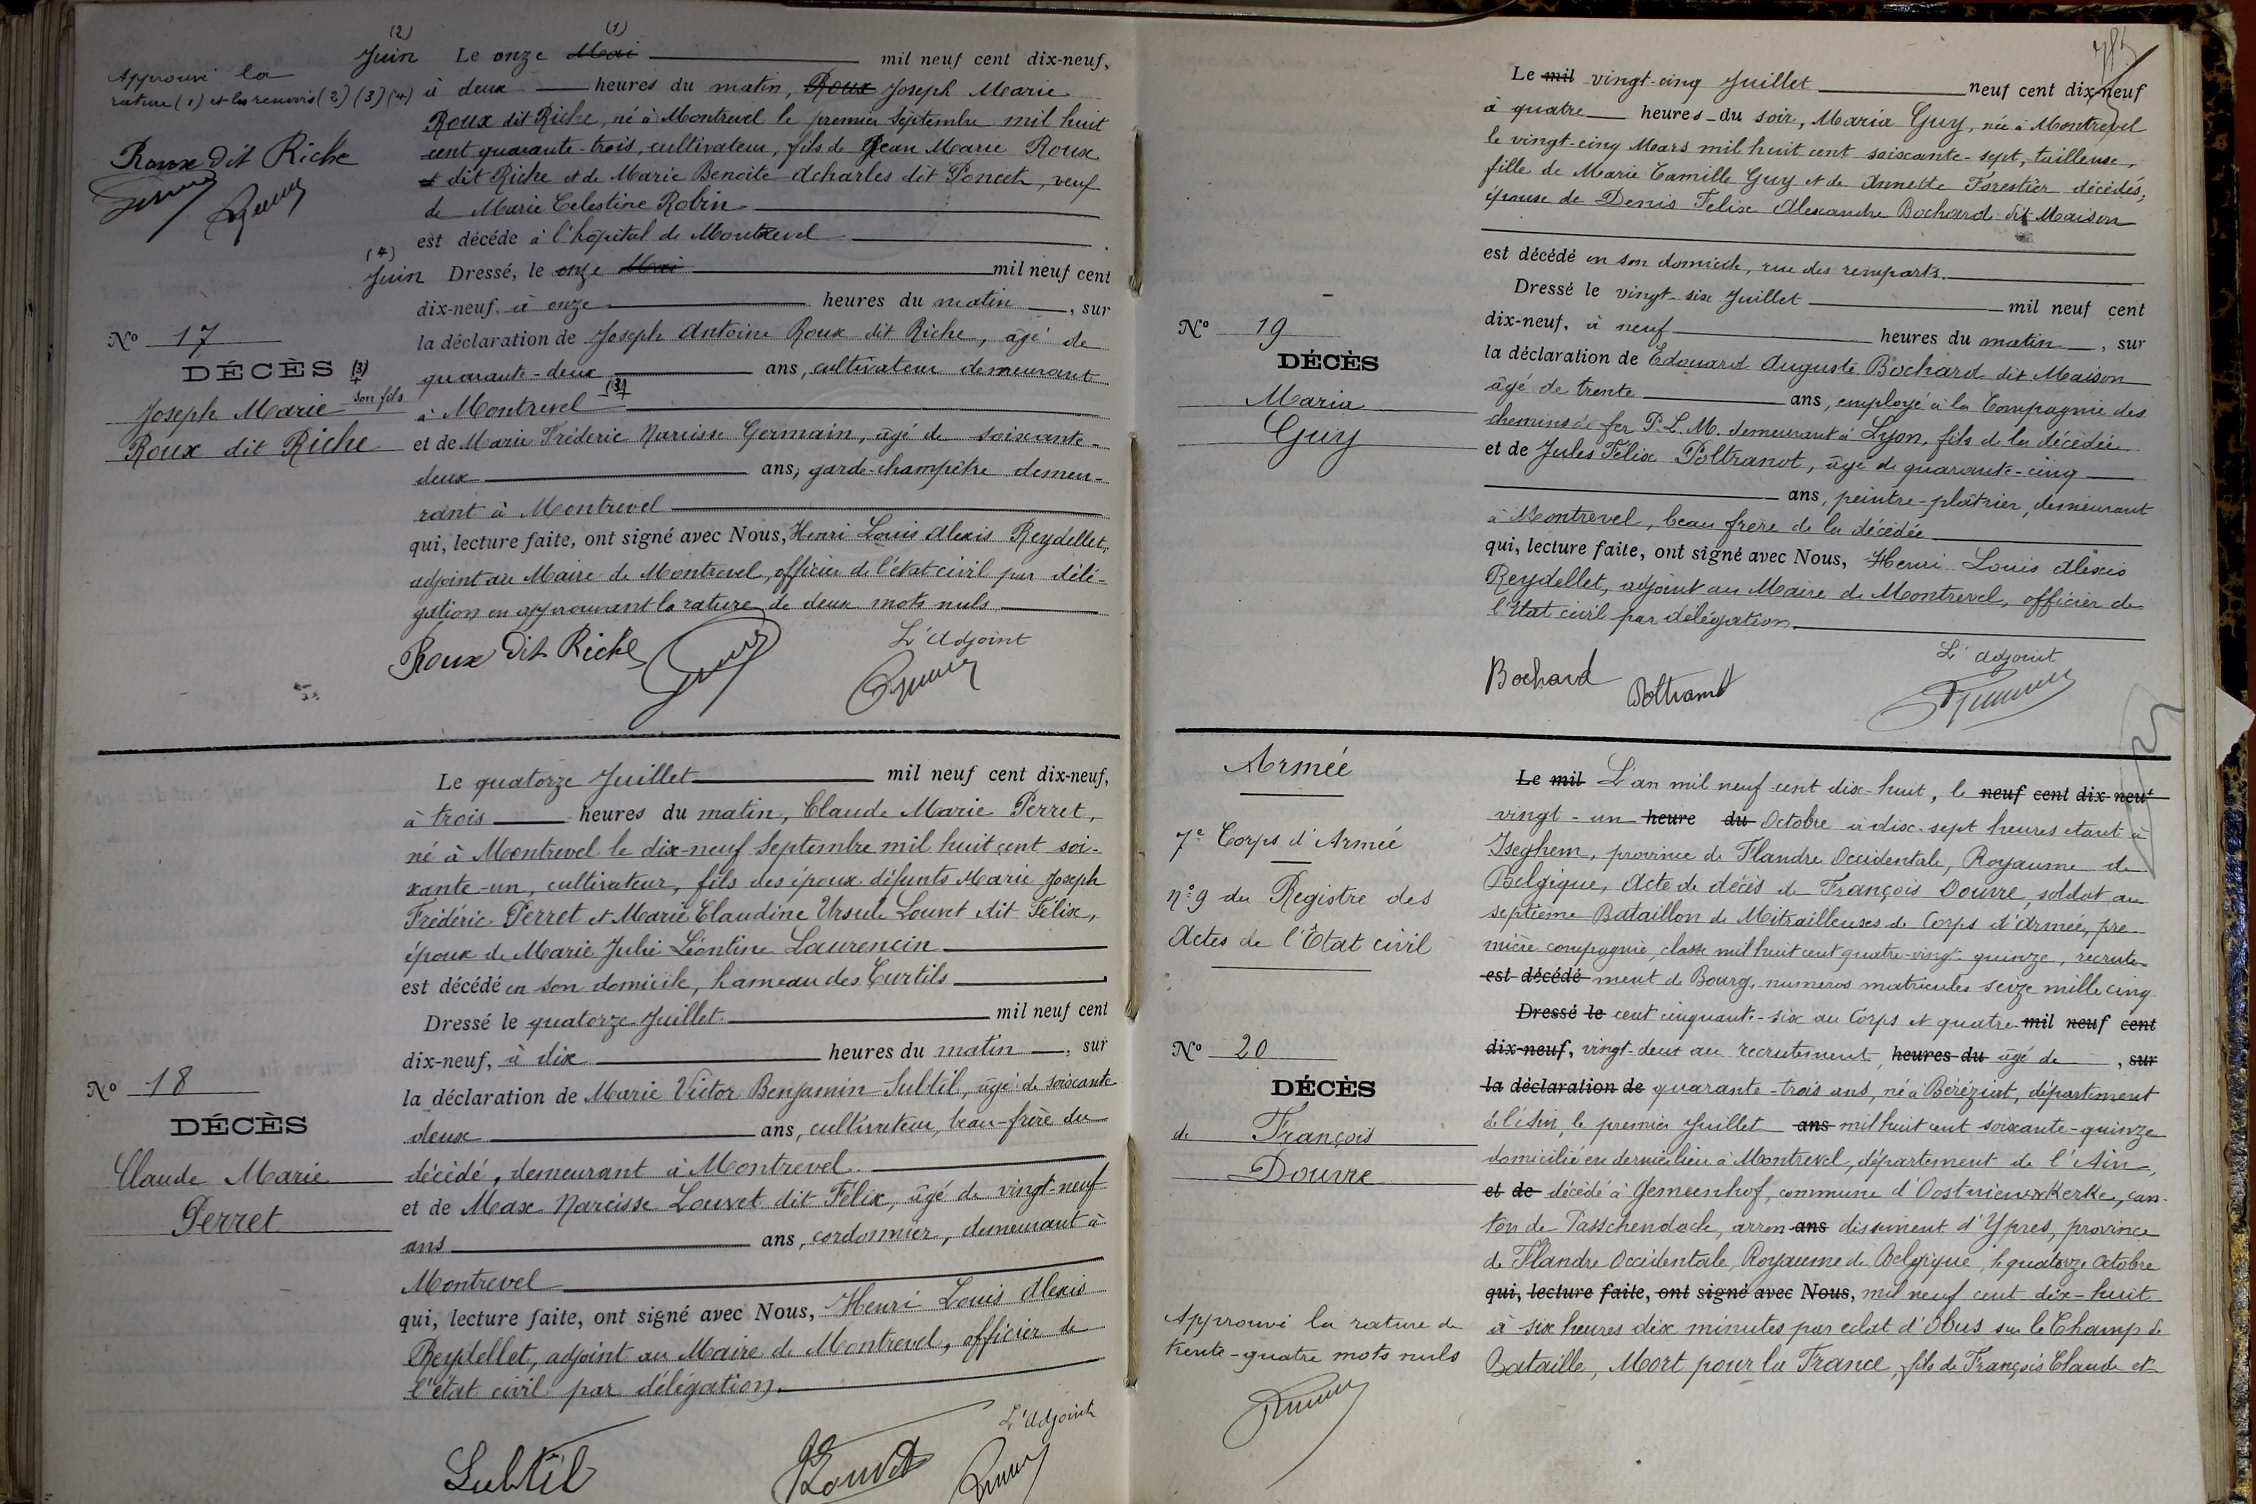 (2) (1)
Juin Le onze Mai mil neuf cent dix-neuf,
à deux heures du matin, Roux Joseph Marie
Roux dit Riche, né à Montrevel le premier Septembre mil huit
cent quarante-trois, cultivateur, fils de Jean Marie Roux
dit Riche et de Marie Benoite Acharles dit Poncet, veuf
de Marie Celestine Robin
est décédé à l'hôpital de Montrevel
(4)
Juin Dressé, le onze Mai mil neuf cent
dix-neuf, à onze heures du matin, sur
la déclaration de Joseph Antoine Roux dit Riche, âgé de
quarante-deux ans, cultivateur demeurant
à Montrevel (3)
et de Marie Fréderic Narcisse Germain, âgé de soixante-
deux ans, garde-champêtre demeu-
rant à Montrevel
qui, lecture faite, ont signé avec Nous, Henri Louis Alexis Reydellet,
adjoint au Maire de Montrevel, officier de l'état civil par délé-
gation en approuvant la rature de deux mots nuls
L'Adjoint
Roux dit Riche
Approuvé la
rature (1) et les renvois (2) (3) (4)
Roux dit Riche
N° 17
DÉCÈS (3)
son fils
Joseph Marie
Roux dit Riche
Le quatorze Juillet mil neuf cent dix-neuf,
à trois heures du matin, Claude Marie Perret,
né à Montrevel le dix-neuf Septembre mil huit cent soi-
xante-un, cultivateur, fils des époux défunts Marie Joseph
Fréderic Perret et Marie Claudine Ursule Louvet dit Félix,
époux de Marie Julie Léontine Laurencin
est décédé en son domicile, hameau des Curtils
Dressé le quatorze Juillet mil neuf cent
dix-neuf, à dix heures du matin, sur
la déclaration de Marie Victor Benjamin Subtil, âgé de soixante
deux ans, cultivateur, beau-frère du
décédé, demeurant à Montrevel
et de Max Narcisse Louvet dit Félix, âgé de vingt-neuf
ans ans, cordonnier, demeurant à
Montrevel
qui, lecture faite, ont signé avec Nous, Henri Louis Alexis
Reydellet, adjoint au Maire de Montrevel, officier de
l'état civil par délégation.
L'Adjoint
Subtil Louvet
N° 18
DÉCÈS
Claude Marie
Perret
Le mil vingt-cinq Juillet neuf cent dix-neuf
à quatre heures du soir, Maria Guy, née à Montrevel
le vingt-cinq Mars mil huit cent soixante-sept, tailleuse,
fille de Marie Camille Guy et de Annette Forestier décédés,
épouse de Denis Felix Alexandre Bochard dit Maison
est décédé en son domicile, rue des remparts.
Dressé le vingt-six Juillet mil neuf cent
dix-neuf, à neuf heures du matin, sur
la déclaration de Edouard Auguste Bochard dit Maison
âgé de trente ans, employé à la Compagnie des
chemins de fer P.L.M. demeurant à Lyon, fils de la décédée
et de Jules Félix Poltranot, âgé de quarante-cinq
ans, peintre-plâtrier, demeurant
à Montrevel, beau frère de la décédée
qui, lecture faite, ont signé avec Nous, Henri Louis Alexis
Reydellet, adjoint au Maire de Montrevel, officier de
l'Etat civil par délégation.
L'Adjoint
Bochard Poltranot
N° 19
DÉCÈS
Maria
Guy
Armée
7e Corps d'Armée
n° 9 du Registre des
Actes de l'État civil
N° 20
DÉCÈS
de François
Douvre
Approuvé la rature de
trente-quatre mots nuls
Le mil L'an mil neuf cent dix-huit, le neuf cent dix-neuf
vingt-un heure du Octobre à dix-sept heures etant à
Iseghem, province de Flandre Occidentale, Royaume de
Belgique, Acte de décès de François Douvre, soldat au
septième Bataillon de Mitrailleuses de Corps d'Armée, pre-
mière compagnie, classe mil huit cent quatre-vingt quinze, recrute-
est décédé ment de Bourg, numeros matricules seize mille cinq
Dressé le cent cinquante-six au Corps et quatre mil neuf cent
dix-neuf, vingt-deux au recrutement, heures du âgé de , sur
la déclaration de quarante-trois ans, né à Béréziat, département
de l'Ain, le premier Juillet ans mil huit cent soixante-quinze
domicilié en dernier lieu à Montrevel, département de l'Ain,
et de décédé à Gemeenhof, commune d'Oostnieuwkerke, can-
ton de Passchendaele, arron ans dissement d'Ypres, province
de Flandre Occidentale, Royaume de Belgique, le quatorze Octobre
qui, lecture faite, ont signé avec Nous, mil neuf cent dix-huit
à six heures dix minutes par eclat d'Obus sur le Champ de
Bataille, Mort pour la France, fils de François Claude et